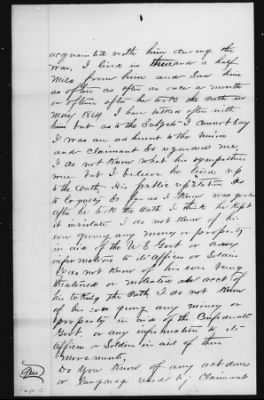 acquainted with him during the
war, I lived in and a half
Mile from him and saw him
as often as often as once a month
or oftener after he took the oath in
May 1864 I have talked often with
him but as to the Subject I cannot say
I was an adherent to the Union
and Claimant so regarded me
I do not know what his sympathies
were but I believe he lived up
to the oath His public reputation as
to loyalty so far as I know was good
after he took the oath I think he kept
it inviolate I do not know of his
ever giving any money or property
in aid of the U S Govt or any
information to its Officers or Soldiers
I do not know of his ever being
threatened or molested on acct of
his taking the oath I do not know
of his ever giving any money or
property in aid of the Confederate
Govt. or any information to its
Officers or Soldiers in aid of their
movements.
Do you know of any act done
or language used by Claimant